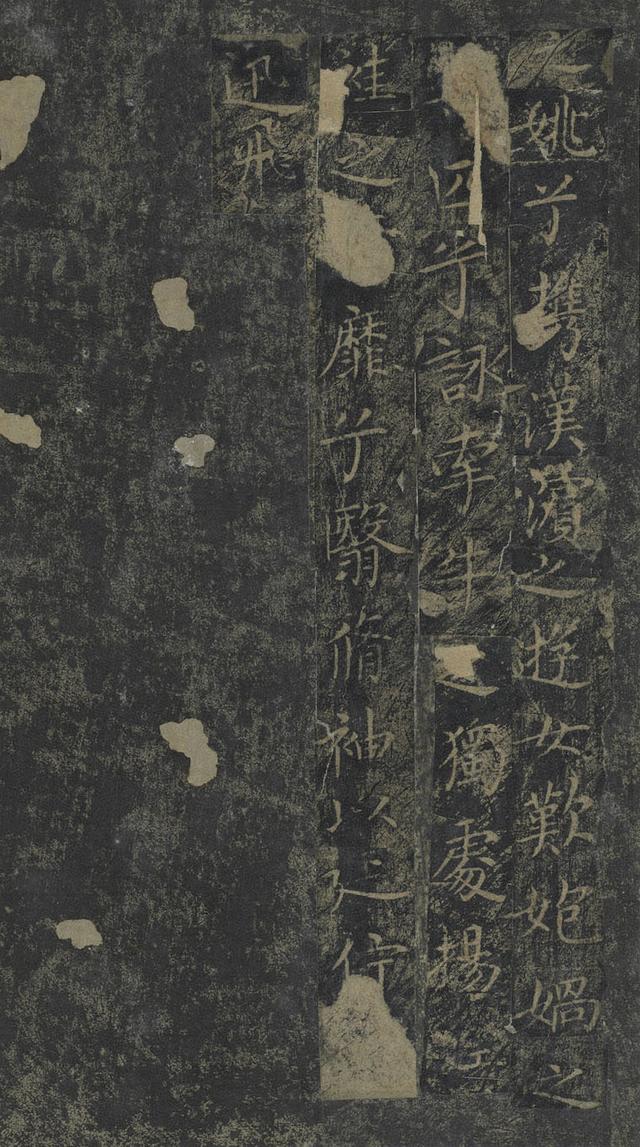 姚兮攜漢濱之遊女歎㚿媧之
匹兮詠牽牛之獨處揚
袿之靡兮翳脩袖以延佇
迅飛